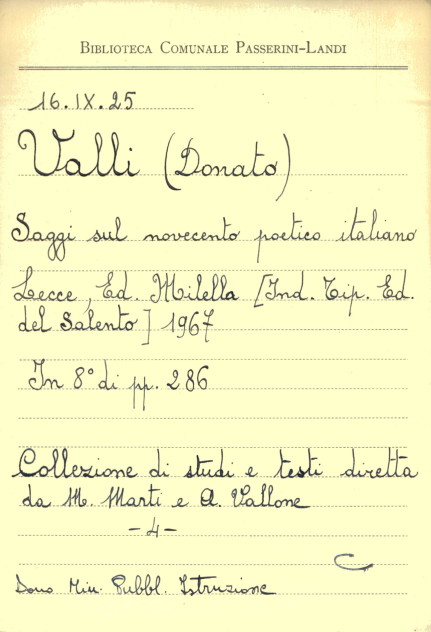 BIBLIOTECA COMUNALE PASSERINI-LANDI
16.IX.25
Valli (Donato)
Saggi sul novecento poetico italiano
Lecce, Ed. Milella [Ind. Tip. Ed.
del Salento] 1967
In 8° di pp. 286
Collezione di studi e testi diretta
da M. Marti e A. Vallone
-4-
C
Dono Min. Pubbl. Istruzione